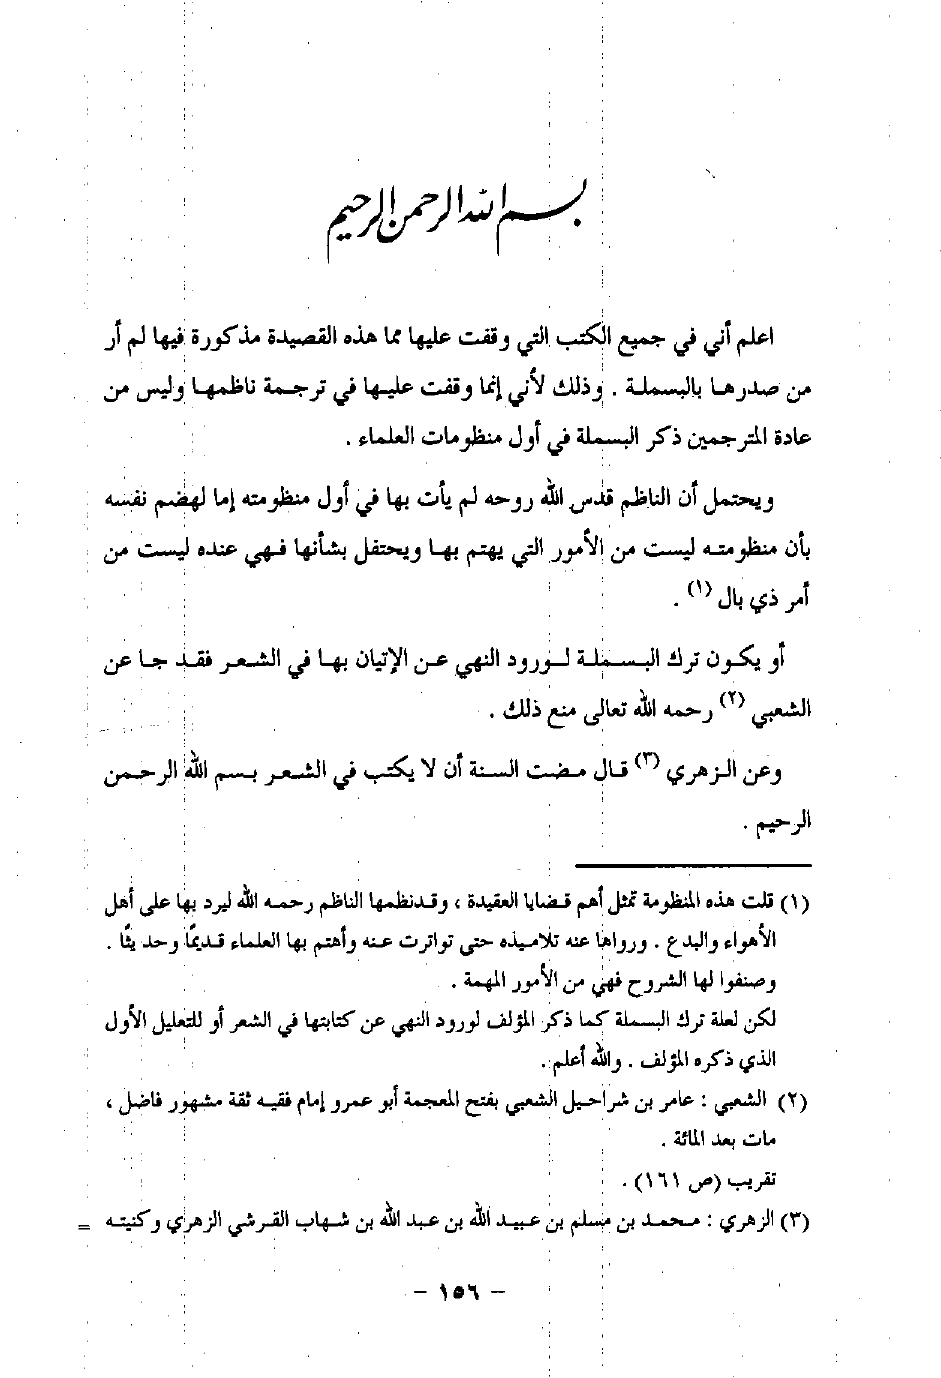 بسم الله الرحمن الرحيم
اعلم أني في جميع الكتب التي وقفت عليها مما هذه القصيدة مذكورة فيها لم أر
من صدرها بالبسملة . وذلك لأني إنما وقفت عليها في ترجمة ناظمها وليس من
عادة المترجمين ذكر البسملة في أول منظومات العلماء .
ويحتمل أن الناظم قدس الله روحه لم يأت بها في أول منظومته إما لهضم نفسه
بأن منظومته ليست من الأمور التي يهتم بها ويحتفل بشأنها فهي عنده ليست من
أمر ذي بال (١) .
أو يكون ترك البسملة لورود النهي عن الإتيان بها في الشعر فقد جا عن
الشعبي (٢) رحمه الله تعالى منع ذلك .
وعن الزهري (٣) قال مضت السنة أن لا يكتب في الشعر بسم الله الرحمن
الرحيم .
(١) قلت هذه المنظومة تمثل أهم قضايا العقيدة ، وقدنظمها الناظم رحمه الله ليرد بها على أهل
الأهواء والبدع . ورواها عنه تلاميذه حتى تواترت عنه وأهتم بها العلماء قديمًا وحديثًا .
وصنفوا لها الشروح فهي من الأمور المهمة .
لكن لعلة ترك البسملة كما ذكر المؤلف لورود النهي عن كتابتها في الشعر أو للتعليل الأول
الذي ذكره المؤلف . والله أعلم .
(٢) الشعبي : عامر بن شراحيل الشعبي بفتح المعجمة أبو عمرو إمام فقيه ثقة مشهور فاضل ،
مات بعد المائة .
تقريب (ص ١٦١) .
(٣) الزهري : محمد بن مسلم بن عبيد الله بن عبد الله بن شهاب القرشي الزهري وكنيته =
- ١٥٦ -